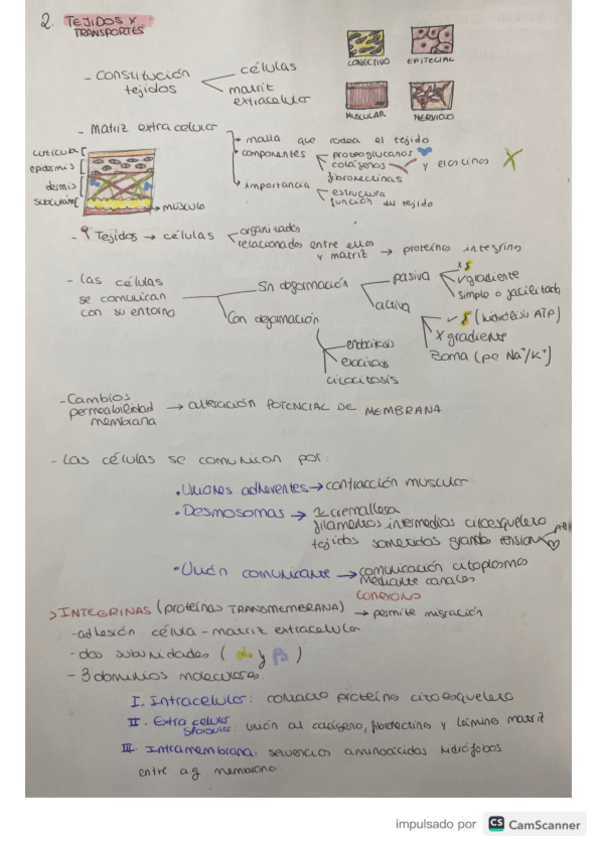 2. TEJIDOS Y
TRANSPORTES
CONECTIVO EPITELIAL
MUSCULAR NERVIOSO
- constitución tejidos
células
matriz extracelular
- Matriz extracelular
malla que rodea el tejido
componentes
proteoglucanos
colágenos y elastinas
fibronectinas
importancia
estructura
función del tejido
cutícula
epidermis
dermis
subcután
músculo
- Tejidos → células
organizados
relacionados entre ellos
y matriz → proteínas integrins
- Las células
se comunican
con su entorno
Sin deformación
pasiva
x $
✓gradiente
simple o facilitada
activa
✓ $ (hidrólisis ATP)
X gradiente
Boma (pe Na⁺/K⁺)
Con deformación
endocitosis
exocitosis
citocitosis
- Cambios
permeabilidad
membrana
→ alteración POTENCIAL DE MEMBRANA
- Las células se comunican por:
• Uniones adherentes → contracción muscular
• Desmosomas →
filamentos intermedios citoesqueleto
tejidos sometidos grandes tensiones
• Unión comunicante → comunicación citoplasmas
mediante canales
CONEXONO
> INTEGRINAS (proteínas TRANSMEMBRANA) → permite migración
- adhesión célula - matriz extracelular
- dos subunidades (α y β)
- 3 dominios moleculares:
I. Intracelular: contacto proteína citoesqueleto
II. Extracelular
unión al colágeno, fibronectina y laminina matriz
III. Intramembrana. secuencias aminoácidos hidrófobos
entre ag membrana.
impulsado por CS CamScanner